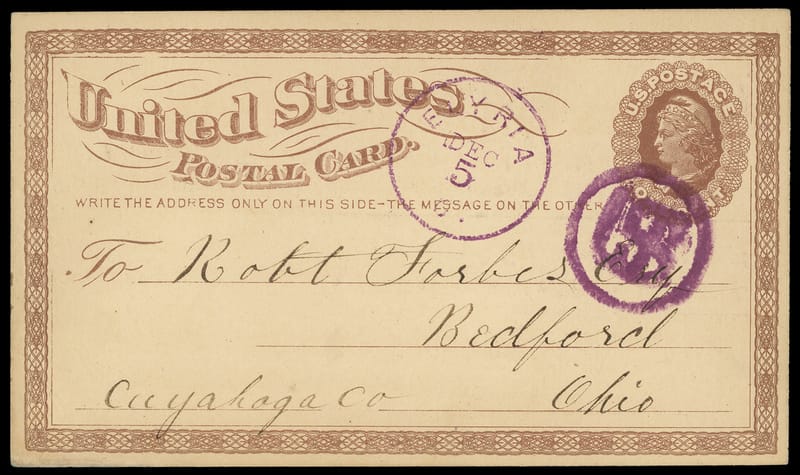 United States
POSTAL CARD.
U.S. POSTAGE
ELYRIA
DEC
5
WRITE THE ADDRESS ONLY ON THIS SIDE–THE MESSAGE ON THE OTHER
To Robt Forbes Esq
Bedford
Cuyahoga Co Ohio